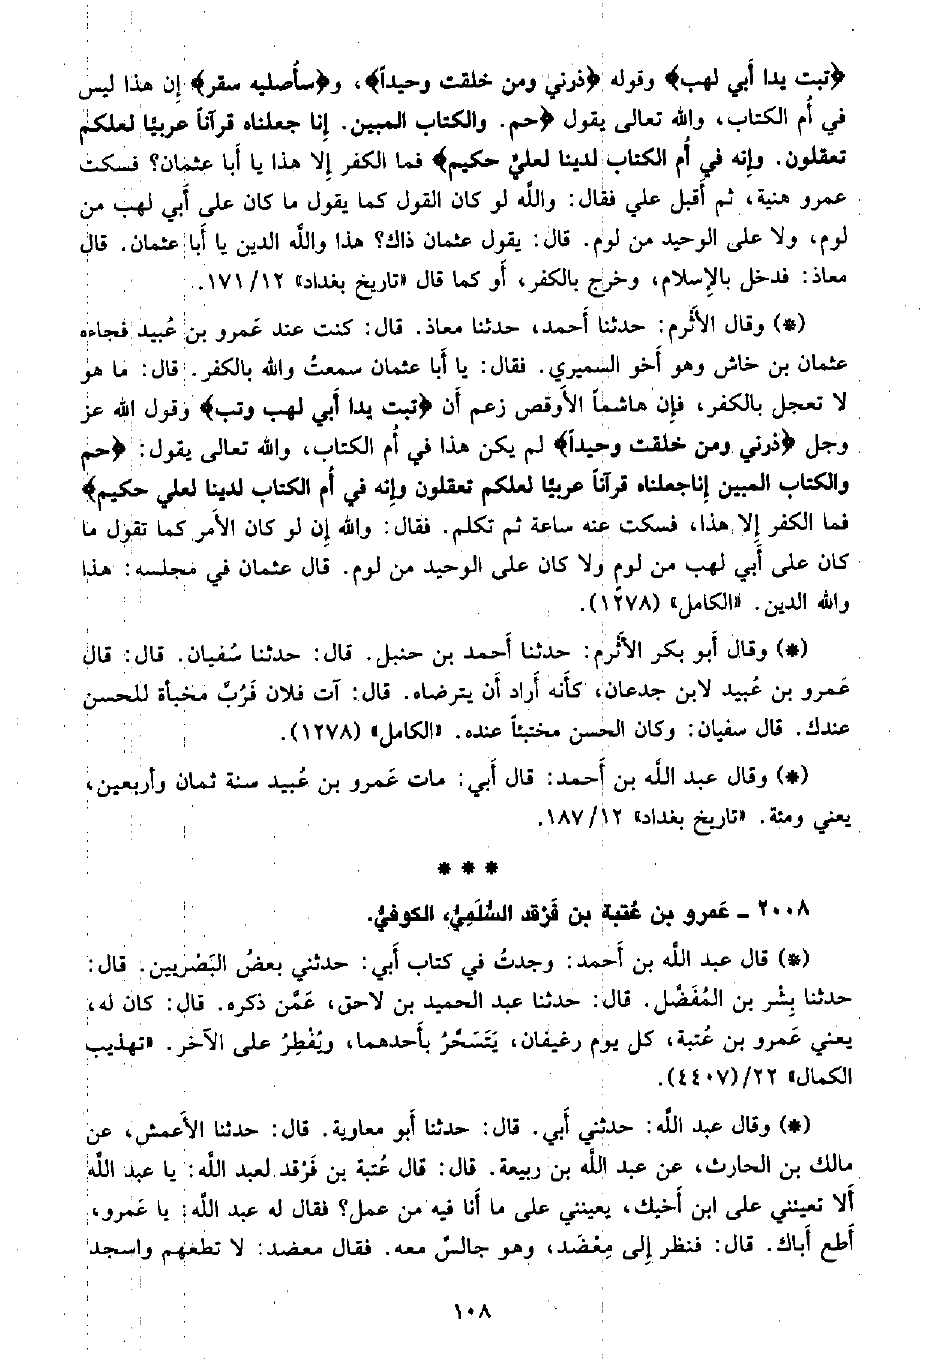 ﴿تبت يدا أبي لهب﴾ وقوله ﴿ذرني ومن خلقت وحيداً﴾، و﴿سأصليه سقر﴾ إن هذا ليس
في أم الكتاب، والله تعالى يقول ﴿حم. والكتاب المبين. إنا جعلناه قرآناً عربيًا لعلكم
تعقلون. وإنه في أم الكتاب لدينا لعليٌ حكيم﴾ فما الكفر إلا هذا يا أبا عثمان؟ فسكت
عمرو هنية، ثم أقبل علي فقال: والله لو كان القول كما يقول ما كان على أبي لهب من
لوم، ولا على الوحيد من لوم. قال: يقول عثمان ذاك؟ هذا والله الدين يا أبا عثمان. قال
معاذ: فدخل بالإسلام، وخرج بالكفر، أو كما قال «تاريخ بغداد» ١٢/ ١٧١.
(*) وقال الأثرم: حدثنا أحمد، حدثنا معاذ. قال: كنت عند عَمرو بن عُبيد فجاءه
عثمان بن خاش وهو أخو السميري. فقال: يا أبا عثمان سمعتُ والله بالكفر. قال: ما هو
لا تعجل بالكفر، فإن هاشماً الأوقص زعم أن ﴿تبت يدا أبي لهب وتب﴾ وقول الله عز
وجل ﴿ذرني ومن خلقت وحيداً﴾ لم يكن هذا في أم الكتاب، والله تعالى يقول: ﴿حم
والكتاب المبين إناجعلناه قرآناً عربيًا لعلكم تعقلون وإنه في أم الكتاب لدينا لعلي حكيم﴾
فما الكفر إلا هذا، فسكت عنه ساعة ثم تكلم. فقال: والله إن لو كان الأمر كما تقول ما
كان على أبي لهب من لوم ولا كان على الوحيد من لوم. قال عثمان في مجلسه: هذا
والله الدين. «الكامل» (١٢٧٨).
(*) وقال أبو بكر الأثرم: حدثنا أحمد بن حنبل. قال: حدثنا سُفيان. قال: قال
عَمرو بن عُبيد لابن جدعان، كأنه أراد أن يترضاه. قال: آت فلان فَرُبَّ مخبأة للحسن
عندك. قال سفيان: وكان الحسن مختبئاً عنده. «الكامل» (١٢٧٨).
(*) وقال عبد الله بن أحمد: قال أبي: مات عَمرو بن عُبيد سنة ثمان وأربعين،
يعني ومئة. «تاريخ بغداد» ١٢/ ١٨٧.
* * *
٢٠٠٨ ـ عَمرو بن عُتبة بن فَرْقد السُّلَمِيُّ، الكوفيُّ.
(*) قال عبد الله بن أحمد: وجدتُ في كتاب أبي: حدثني بعضُ البَصْريين. قال:
حدثنا بِشْر بن المُفَضَّل. قال: حدثنا عبد الحميد بن لاحق، عَمَّن ذكره. قال: كان له،
يعني عَمرو بن عُتبة، كل يوم رغيفان، يَتَسَحَّرُ بأحدهما، ويُفْطِرُ على الآخر. «تهذيب
الكمال» ٢٢/ (٤٤٠٧).
(*) وقال عبد الله: حدثني أبي. قال: حدثنا أبو معاوية. قال: حدثنا الأعمش، عن
مالك بن الحارث، عن عبد الله بن ربيعة. قال: قال عُتبة بن فَرْقد لعبد الله: يا عبد الله
ألا تعينني على ابن أخيك، يعينني على ما أنا فيه من عمل؟ فقال له عبد الله: يا عَمرو،
أطع أباك. قال: فنظر إلى مِعْضَد، وهو جالسٌ معه. فقال معضد: لا تطعهم واسجد
١٠٨